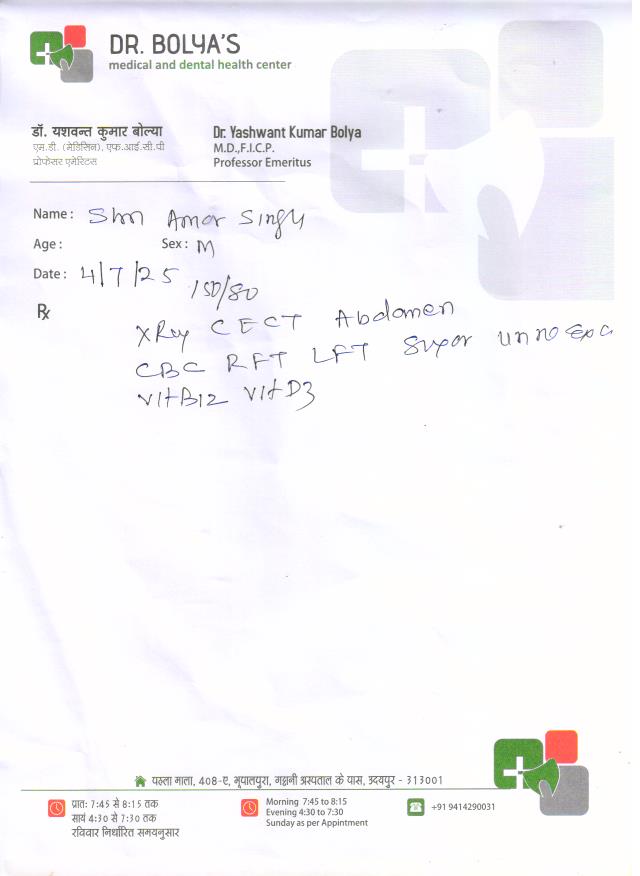 DR. BOLYA'S
medical and dental health center
डॉ. यशवन्त कुमार बोल्या
एम.डी. (मेडिसिन), एफ.आई.सी.पी
प्रोफेसर एमेरिटस
Dr. Yashwant Kumar Bolya
M.D.,F.I.C.P.
Professor Emeritus
Name: Shri Amar Singh
Age: Sex: M
Date: 4/7/25
150/80
℞
XRay CECT Abdomen
CBC RFT LFT Sugar
Vit B12 Vit D3
पहला माला, 408-ए, भूपालपुरा, गट्टानी अस्पताल के पास, उदयपुर - 313001
प्रात: 7:45 से 8:15 तक
सायं 4:30 से 7:30 तक
रविवार निर्धारित समयनुसार
Morning 7:45 to 8:15
Evening 4:30 to 7:30
Sunday as per Appintment
+91 9414290031